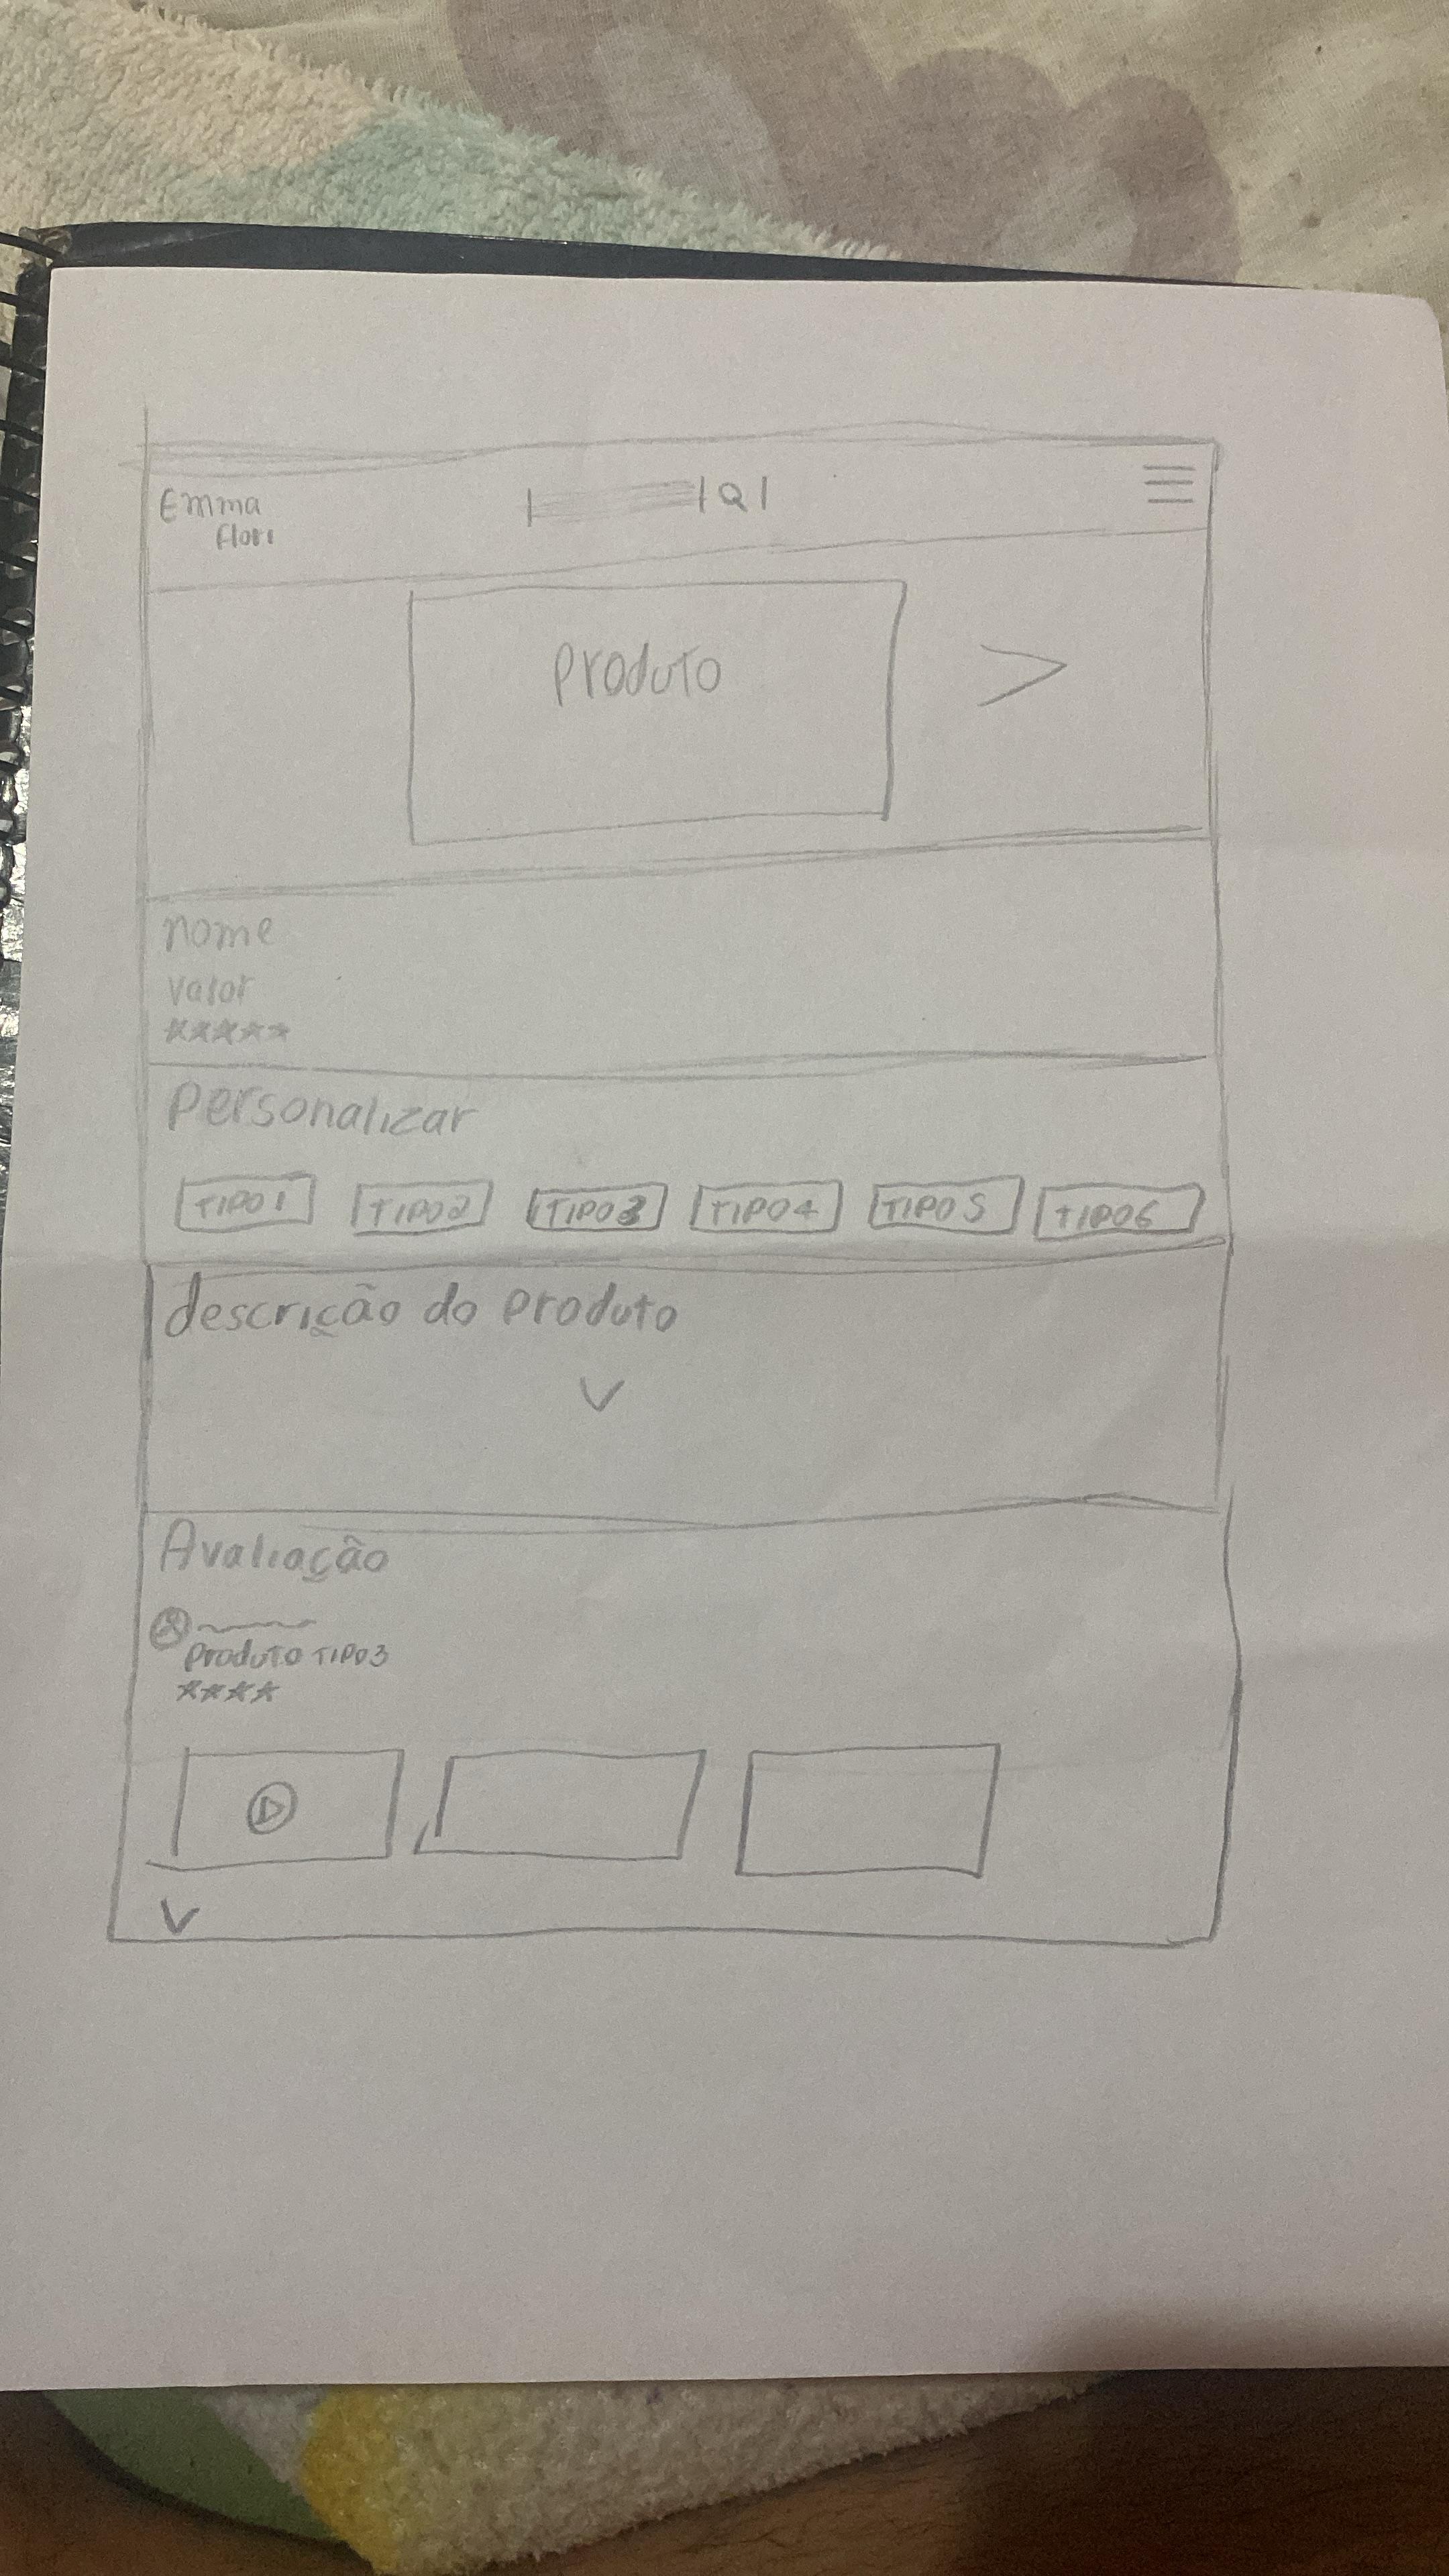 Emma
flori
Produto
nome
valor
Personalizar
TIPO1 TIPO2 TIPO3 TIPO4 TIPO5 TIPO6
descrição do produto
Avaliação
Produto TIPO3